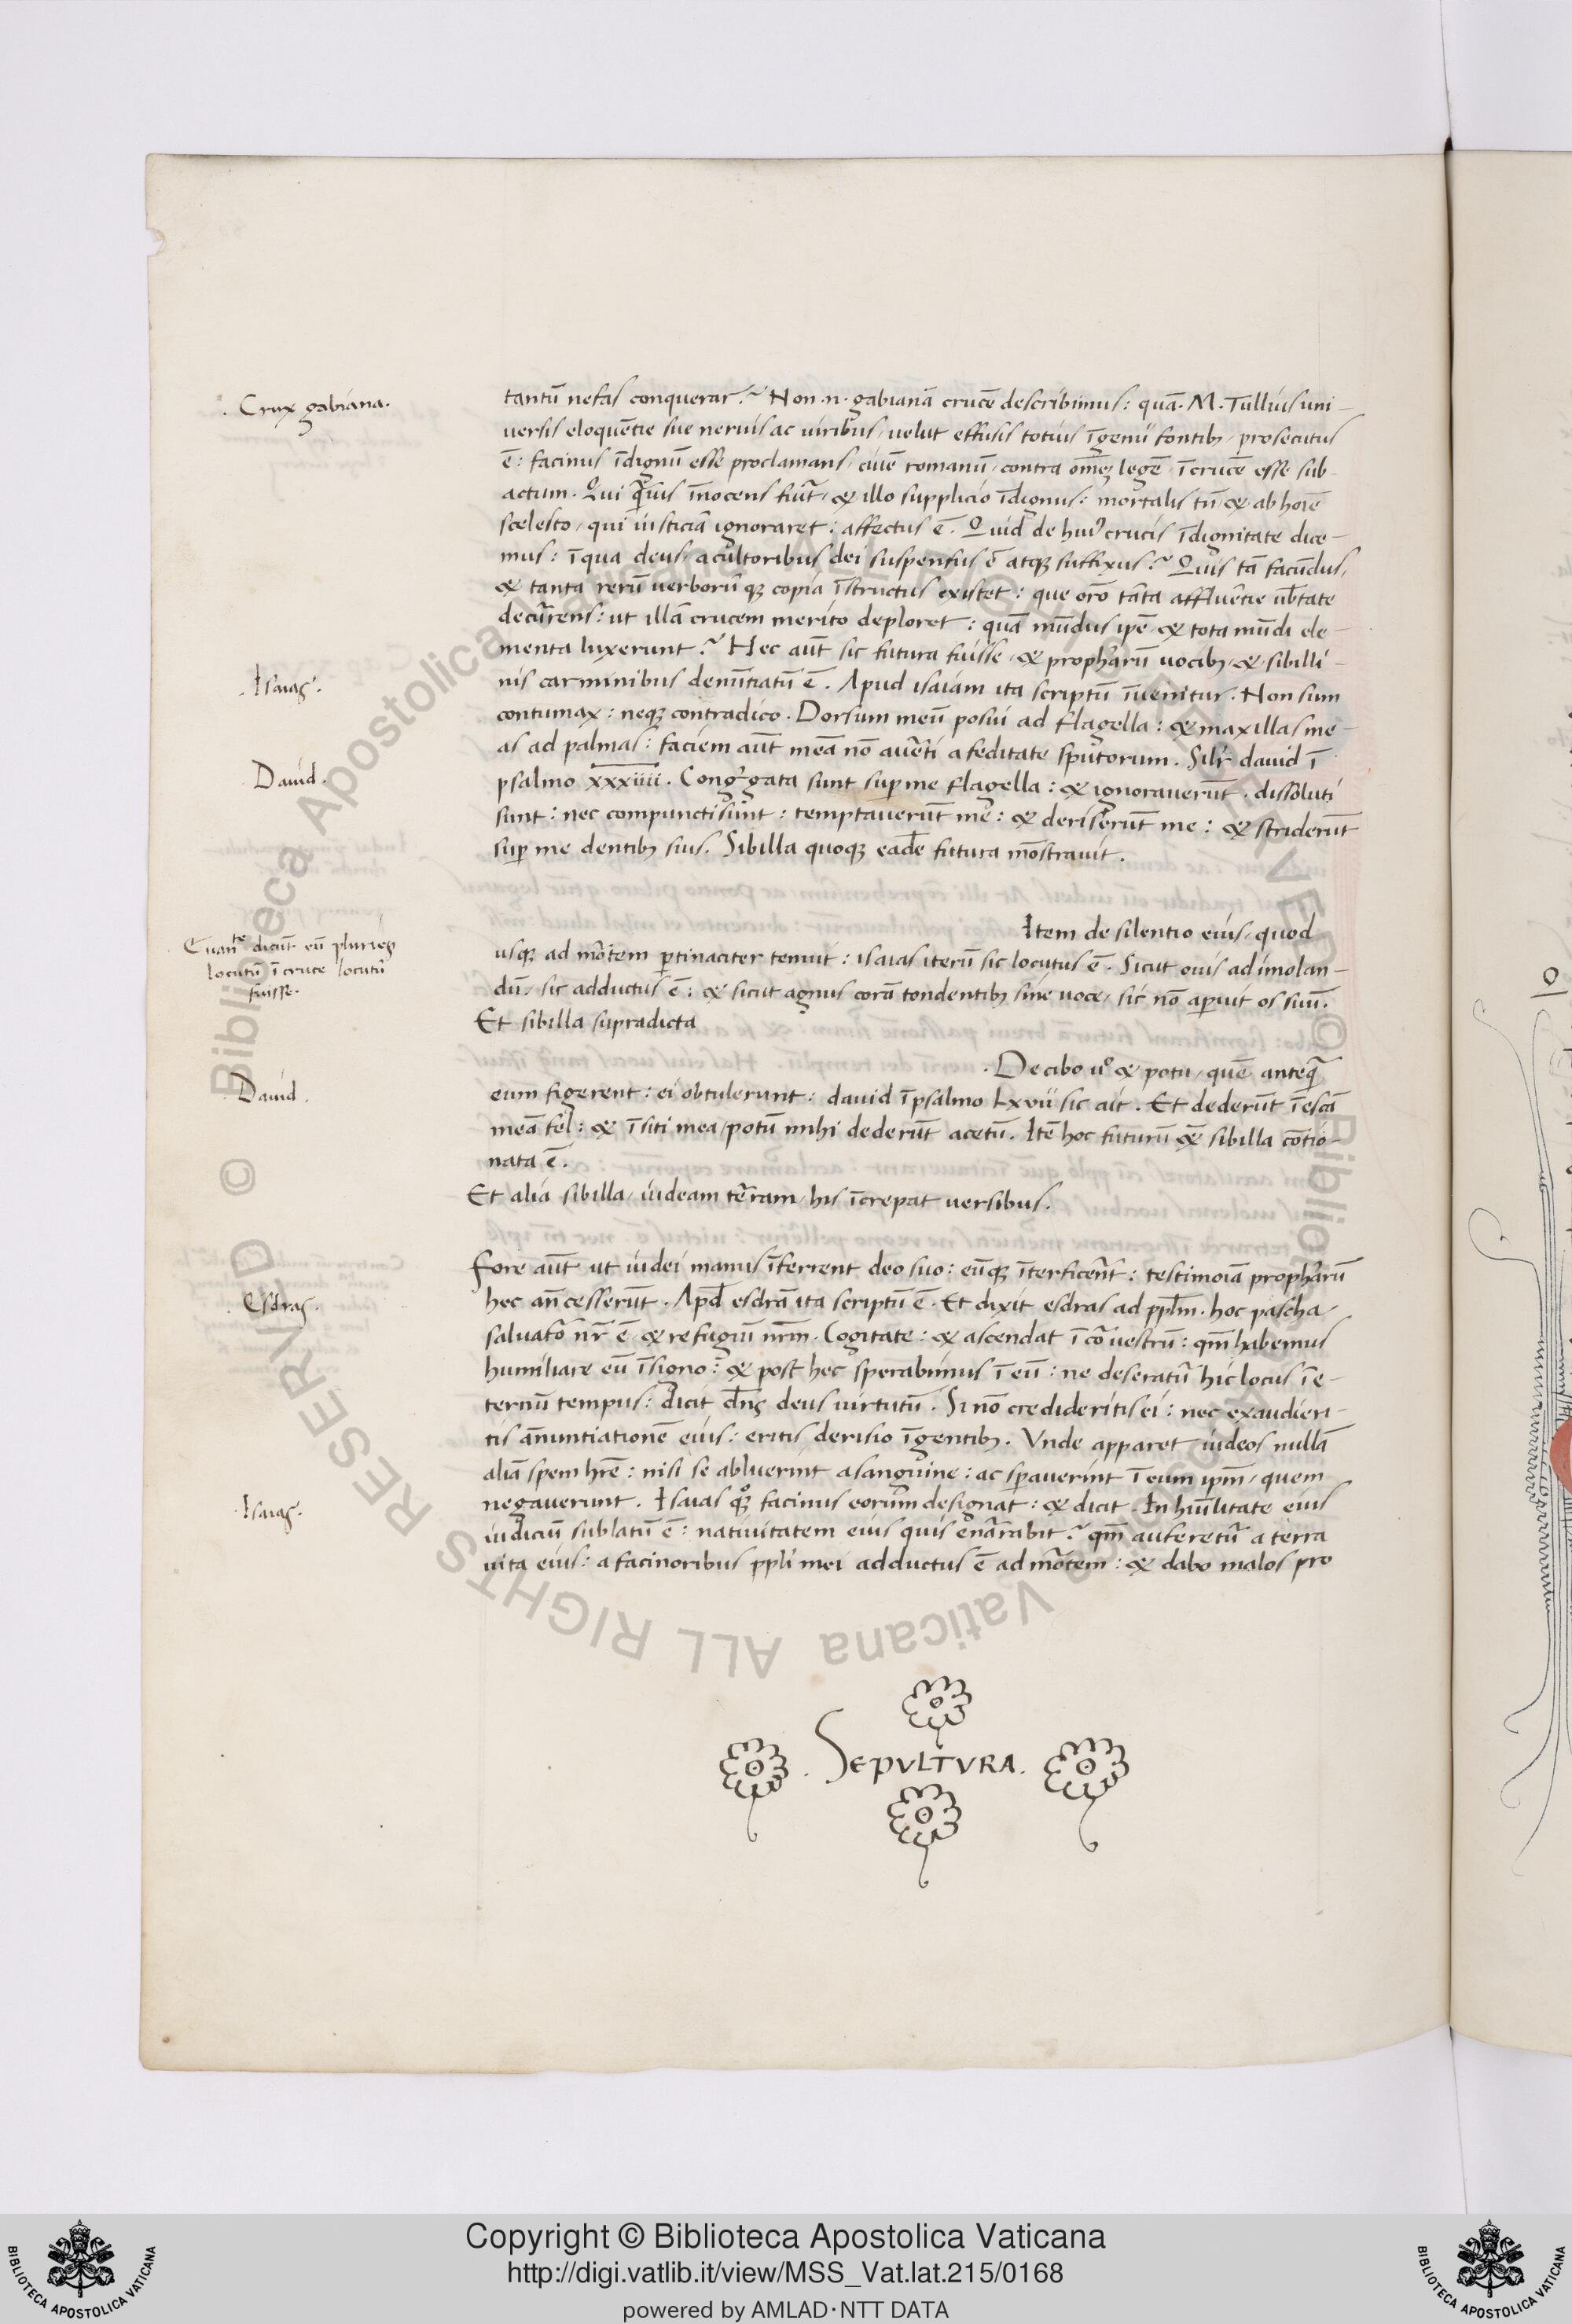 . Crux gabiana.
tantū nefas conquerar? Non .n. gabianā crucē describimus: quā .M. Tullius uni-
versis eloquētie sue nervis ac viribus, velut effusis totius īgenii fontib3, prosecutus
ē: facinus īdignū esse proclamans, civē romanū, contra om̄ez legē, ī crucē esse sub-
actum. Qui q̄vis īnocens fuit, & illo supplicio īdignus: mortalis tn̄ & ab hoīe
scelesto, qui iusticiā ignoraret: affectus ē. Quid de huiꝰ crucis īdignitate dice-
mus: ī qua deus, a cultoribus dei suspensus ē atqꝫ suffixus? Quis tā facūdus,
& tanta rerū verborūqꝫ copia īstructus existet: que or̄o tāta affluētie ub̄tate
decur̄rens: ut illā crucem merito deploret: quā mūdus ipē & tota mūdi ele-
menta luxerunt? Hec aūt sic futura fuisse, & prophar̄ū vocib3, & sibilli-
nis carminibus denūtiatū ē. Apud isaiam ita scriptū īvenitur. Non sum
. Isaias.
contumax: neqꝫ contradico. Dorsum meū posui ad flagella: & maxillas me-
as ad palmas: faciem aūt meā nō averti a feditate sputorum. Silr̄ david ī
. David.
psalmo xxxiiii. Congr̄gata sunt suꝑ me flagella: & ignoraverūt. dissoluti
sunt: nec compuncti sunt: temptaverūt me: & deriserūt me: & striderūt
suꝑ me dentib3 suis. Sibilla quoqꝫ eadē futura mōstravit.
Item de silentio eius, quod
Evan^te dicūt eū pluries
locutū ī cruce locutū
fuisse.
usqꝫ ad mōrtem ꝑtinaciter tenuit: isaias iterū sic locutus ē. Sicut ovis ad imolan-
dū, sic adductus ē: & sicut agnus corā tondentib3 sine voce, sic nō aꝑuit os suū.
Et sibilla supradicta
. De cibo v° & potu, quē anteq̄
eum figerent: ei obtulerunt: david ī psalmo Lxvii sic ait. Et dederūt ī escā
. David.
meā fel: & ī siti mea, potū mihi dederūt acetū. Itē hoc futurū eē sibilla cōtio-
nata ē.
Et alia sibilla, iudeam tēr̄ram, his īcrepat versibus.
Fore aūt ut iudei manus īferrent deo suo: eūqꝫ īterficerēt: testimoia prophar̄ū
hec an̄cesserūt. Apd̄ esdrā ita scriptū ē. Et dixit esdras ad ppl̄m. hoc pascha,
. Esdras.
salvator̄ nr̄ ē & refugiū nr̄m. Cogitate: & ascendat ī cor̄ vestrū: qm̄ habemus
humiliare eū ī signo: & post hec sperabimus ī eū: ne deseratur̄ hic locus ī e-
ternū tempus: dicit dn̄s deus virtutū. Si nō credideritis ei: nec exaudieri-
tis ānuntiationē eius: eritis derisio ī gentib3. Unde apparet iudeos nullā
aliā spem hr̄e: nisi se abluerint a sanguine: ac sꝑaverint ī eum ipm̄, quem
negaverunt. Isaias qꝫ° facinus eorum designat: & dicit. In hūilitate eius
. Isaias.
iudiciū sublatū ē: nativitatem eius quis enar̄rabit? qm̄ auferetur̄ a terra
vita eius: a facinoribus ppli mei adductus ē ad mōrtem: & dabo malos pro
. SEPVLTVRA.
Q
Copyright © Biblioteca Apostolica Vaticana
http://digi.vatlib.it/view/MSS_Vat.lat.215/0168
powered by AMLAD·NTT DATA
BIBLIOTECA APOSTOLICA VATICANA
BIBLIOTECA APOSTOLICA VATICANA
© Biblioteca Apostolica Vaticana ALL RIGHTS RESERVED